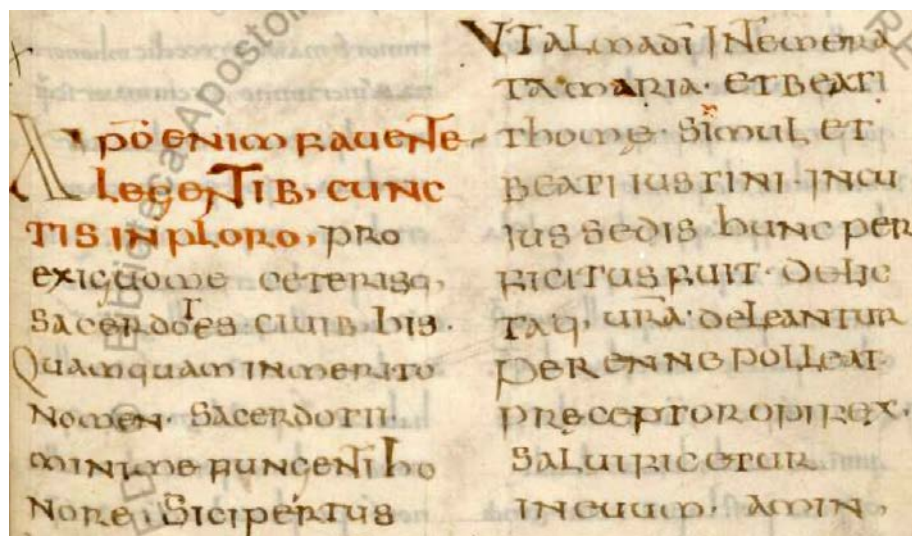 Apoenim faueNte
legeNTIB, cunc
TIS INploro, pro
exiguome ceterisq,
Sacerdotes ciuib, his.
Quamquam inmerito
Nomen. Sacerdotii.
minime fungeNti ho
Nore. Sicipertus
Vitalmadi INemera
Ta maria. et beati
Thome. Simul et
Beati iustini. Incu
ius sedis hunc per
ficit us fuit. Delic
Taq, ura. deleantur
Perenne polleat.
Preceptor opifex.
Salutificetur
Incuum. Amin.